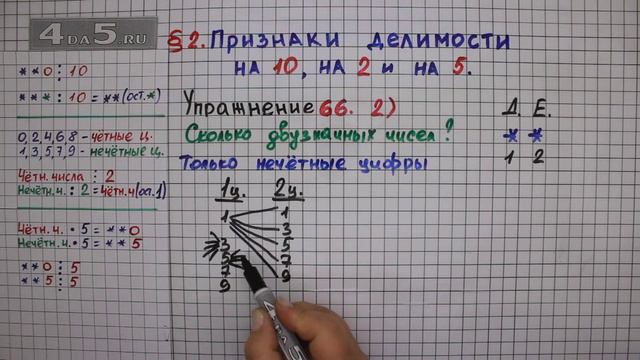 4DA5.RU
§2. Признаки делимости
на 10, на 2 и на 5.
**0 : 10
*** : 10 = **(ост.*)
0,2,4,6,8 – чётные ц.
1,3,5,7,9 – нечётные ц.
Чётн. числа : 2
Нечётн.ч. : 2 = чётн.ч(ост.1)
Чётн. ч. • 5 = **0
Нечётн. ч. • 5 = **5
**0 : 5
**5 : 5
Упражнение 66. 2)
Сколько двузначных чисел?
Только нечётные цифры
Д. Е.
* *
1 2
1ц. 2ц.
1 1
3
3 5
5 7
7 9
9